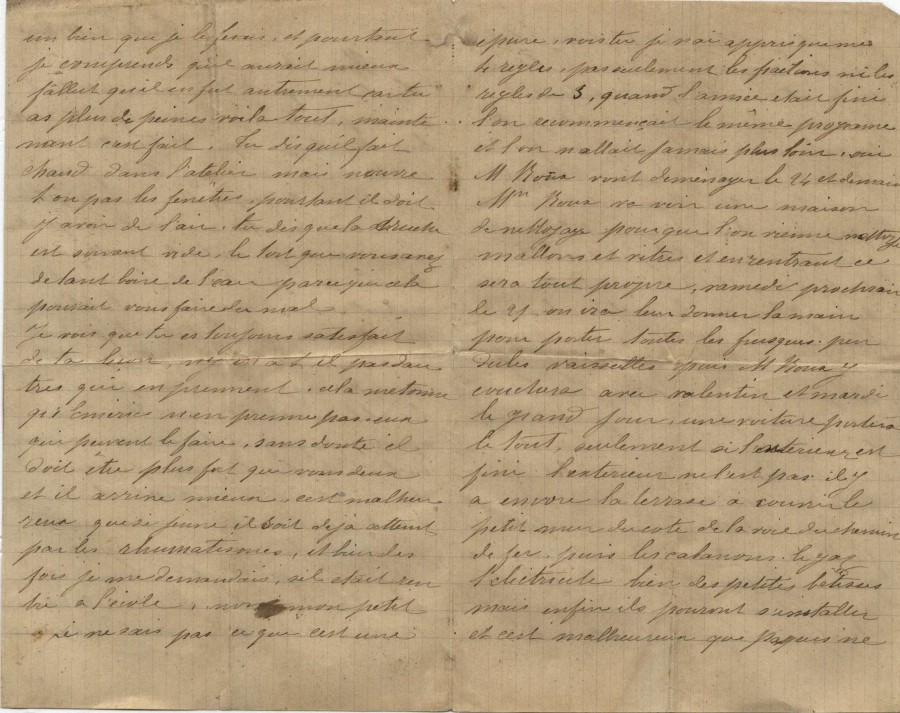 un bien que je le ferais, et pourtant
je comprends qu'il aurait mieux
fallut qu'il en fut autrement car tu
as plus de peines voila tout, mainte
nant c'est fait. Tu dis qu'il fait
chaud dans l'atelier mais n'ouvre
t on pas les fenêtres, pourtant il doit
y avoir de l'air. tu dis que la
est souvent vide, le tort que vous avez
de tant boire de l'eau parce que cela
pourrait vous faire du mal.
Je vois que tu es toujours satisfait
de ta n'y en a t il pas d'au
tres qui en prennent. cela m'etonne
qu'Emeric n'en prenne pas eux
qui peuvent le faire, sans doute il
doit être plus fort que vous deux
et il arrive mieux. c'est malheu
reux que si jeune il soit deja atteint
par les rhumatismes, et bien des
fois je me demandais, s'il était ren
tré a l'école, non mon petit
je ne sais pas ce que c'est une
épure, vois tu je n'ai appris que mes
4 regles, pas seulement les fractions ni les
regles de 3, quand l'année etait fini
l'on recommençait le même programe
et l'on n'allait jamais plus loin. oui
M Roux vont demenager le 24 et demain
Mme Roux va voir une maison
de nettoyage pour que l'on vienne nettoye
mallons et vitres et en rentrant ce
sera tout propre, samedi prochain
le 21 on ira leur donner la main
pour porter toutes les
vaissettes puis M Roux y
couchera avec valentin et mardi
le grand jour, une voiture portera
le tout, seulement si l'interieur est
fini l'exterieur ne l'est pas il y
a encore la terrase a couvrir le
petit mur du cote de la voie du chemin
de fer. puis les cabanons le gaz
l'electricite bien des petites bêtises
mais enfin ils pouront s'installer
et c'est malheureux que ne